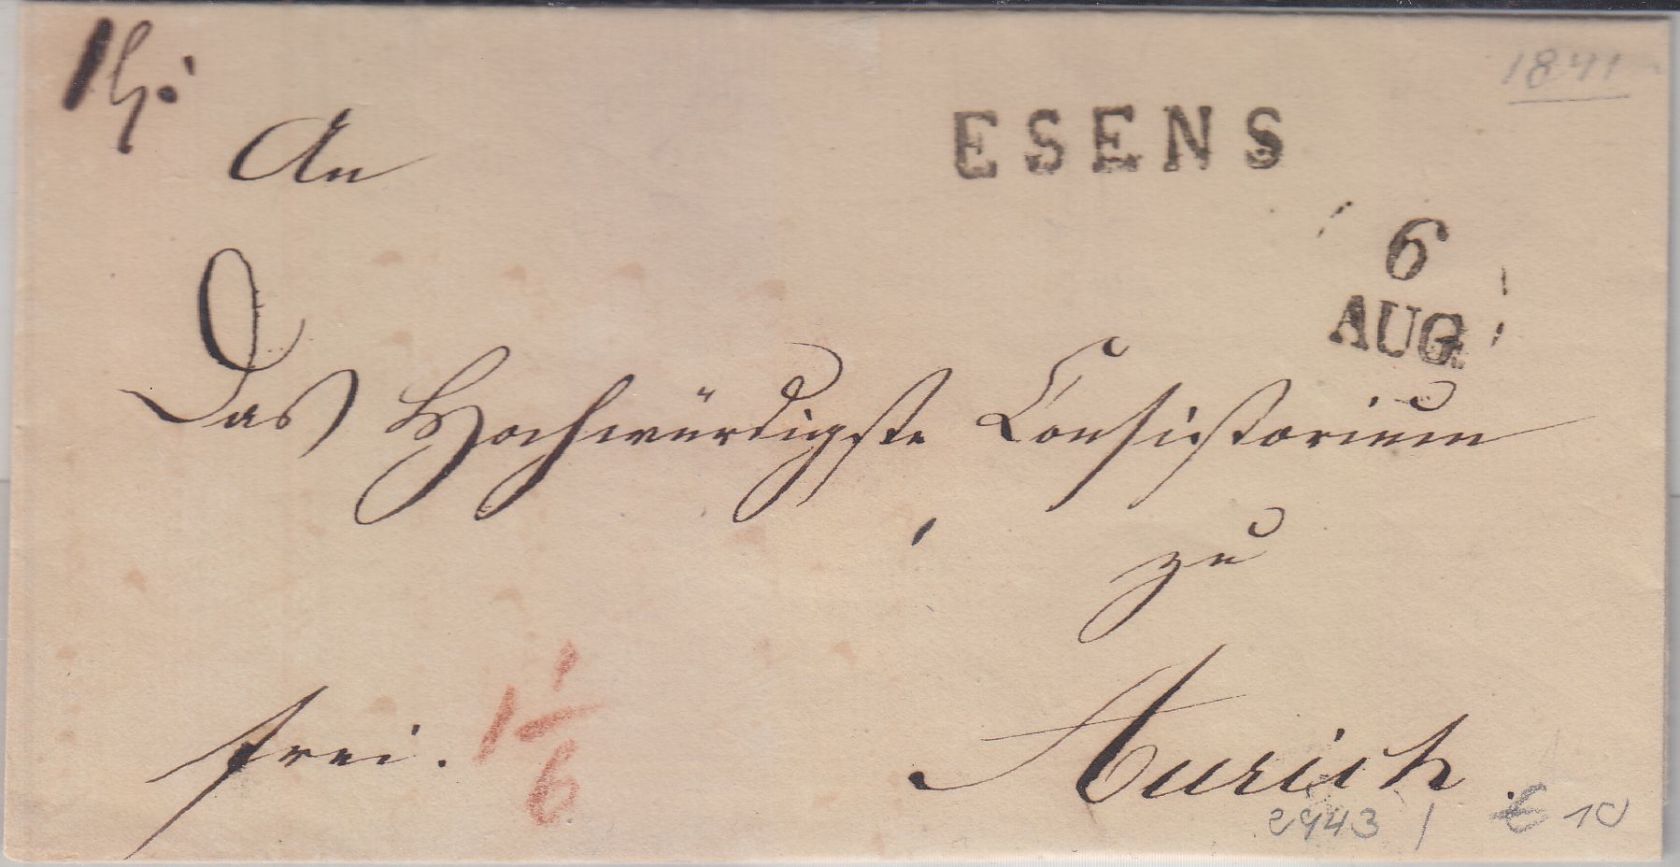 1841
An
ESENS
6
AUG.
Das Hochwürdigste Consistorium
zu
frei. 1 1/6
Aurich.
2443 € 10